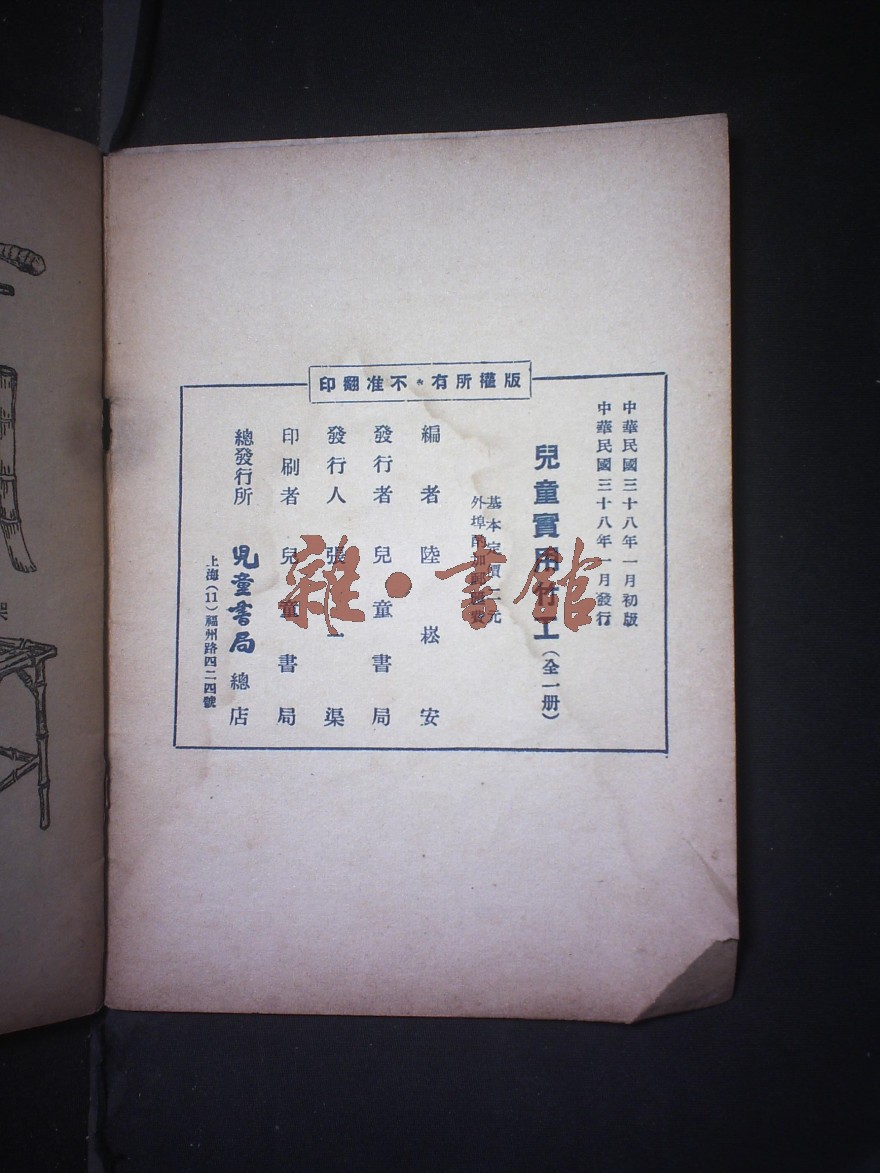 版權所有•不准翻印
中華民國三十八年一月初版
中華民國三十八年一月發行
兒童實用竹工（全一册）
基本定價二元
外埠酌加郵運費
編者 陸崧安
發行者 兒童書局
發行人 張一渠
印刷者 兒童書局
總發行所 兒童書局 總店
上海(11)福州路四二四號
架
雜•書館